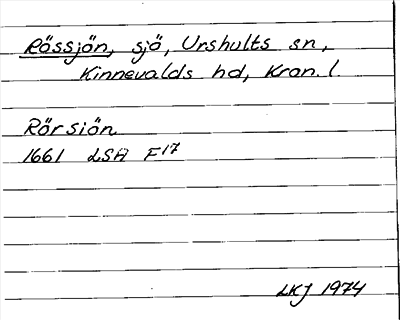 Rössjön, sjö, Urshults sn,
Kinnevalds hd, Kron. l.
Rörsiön
1661 LSA F17
LKJ 1974